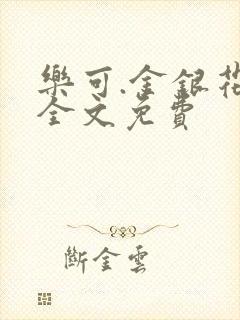 樂可.金銀花
全文免費
斷金雲